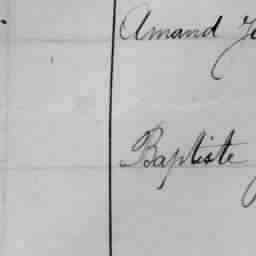 Amand
Baptiste